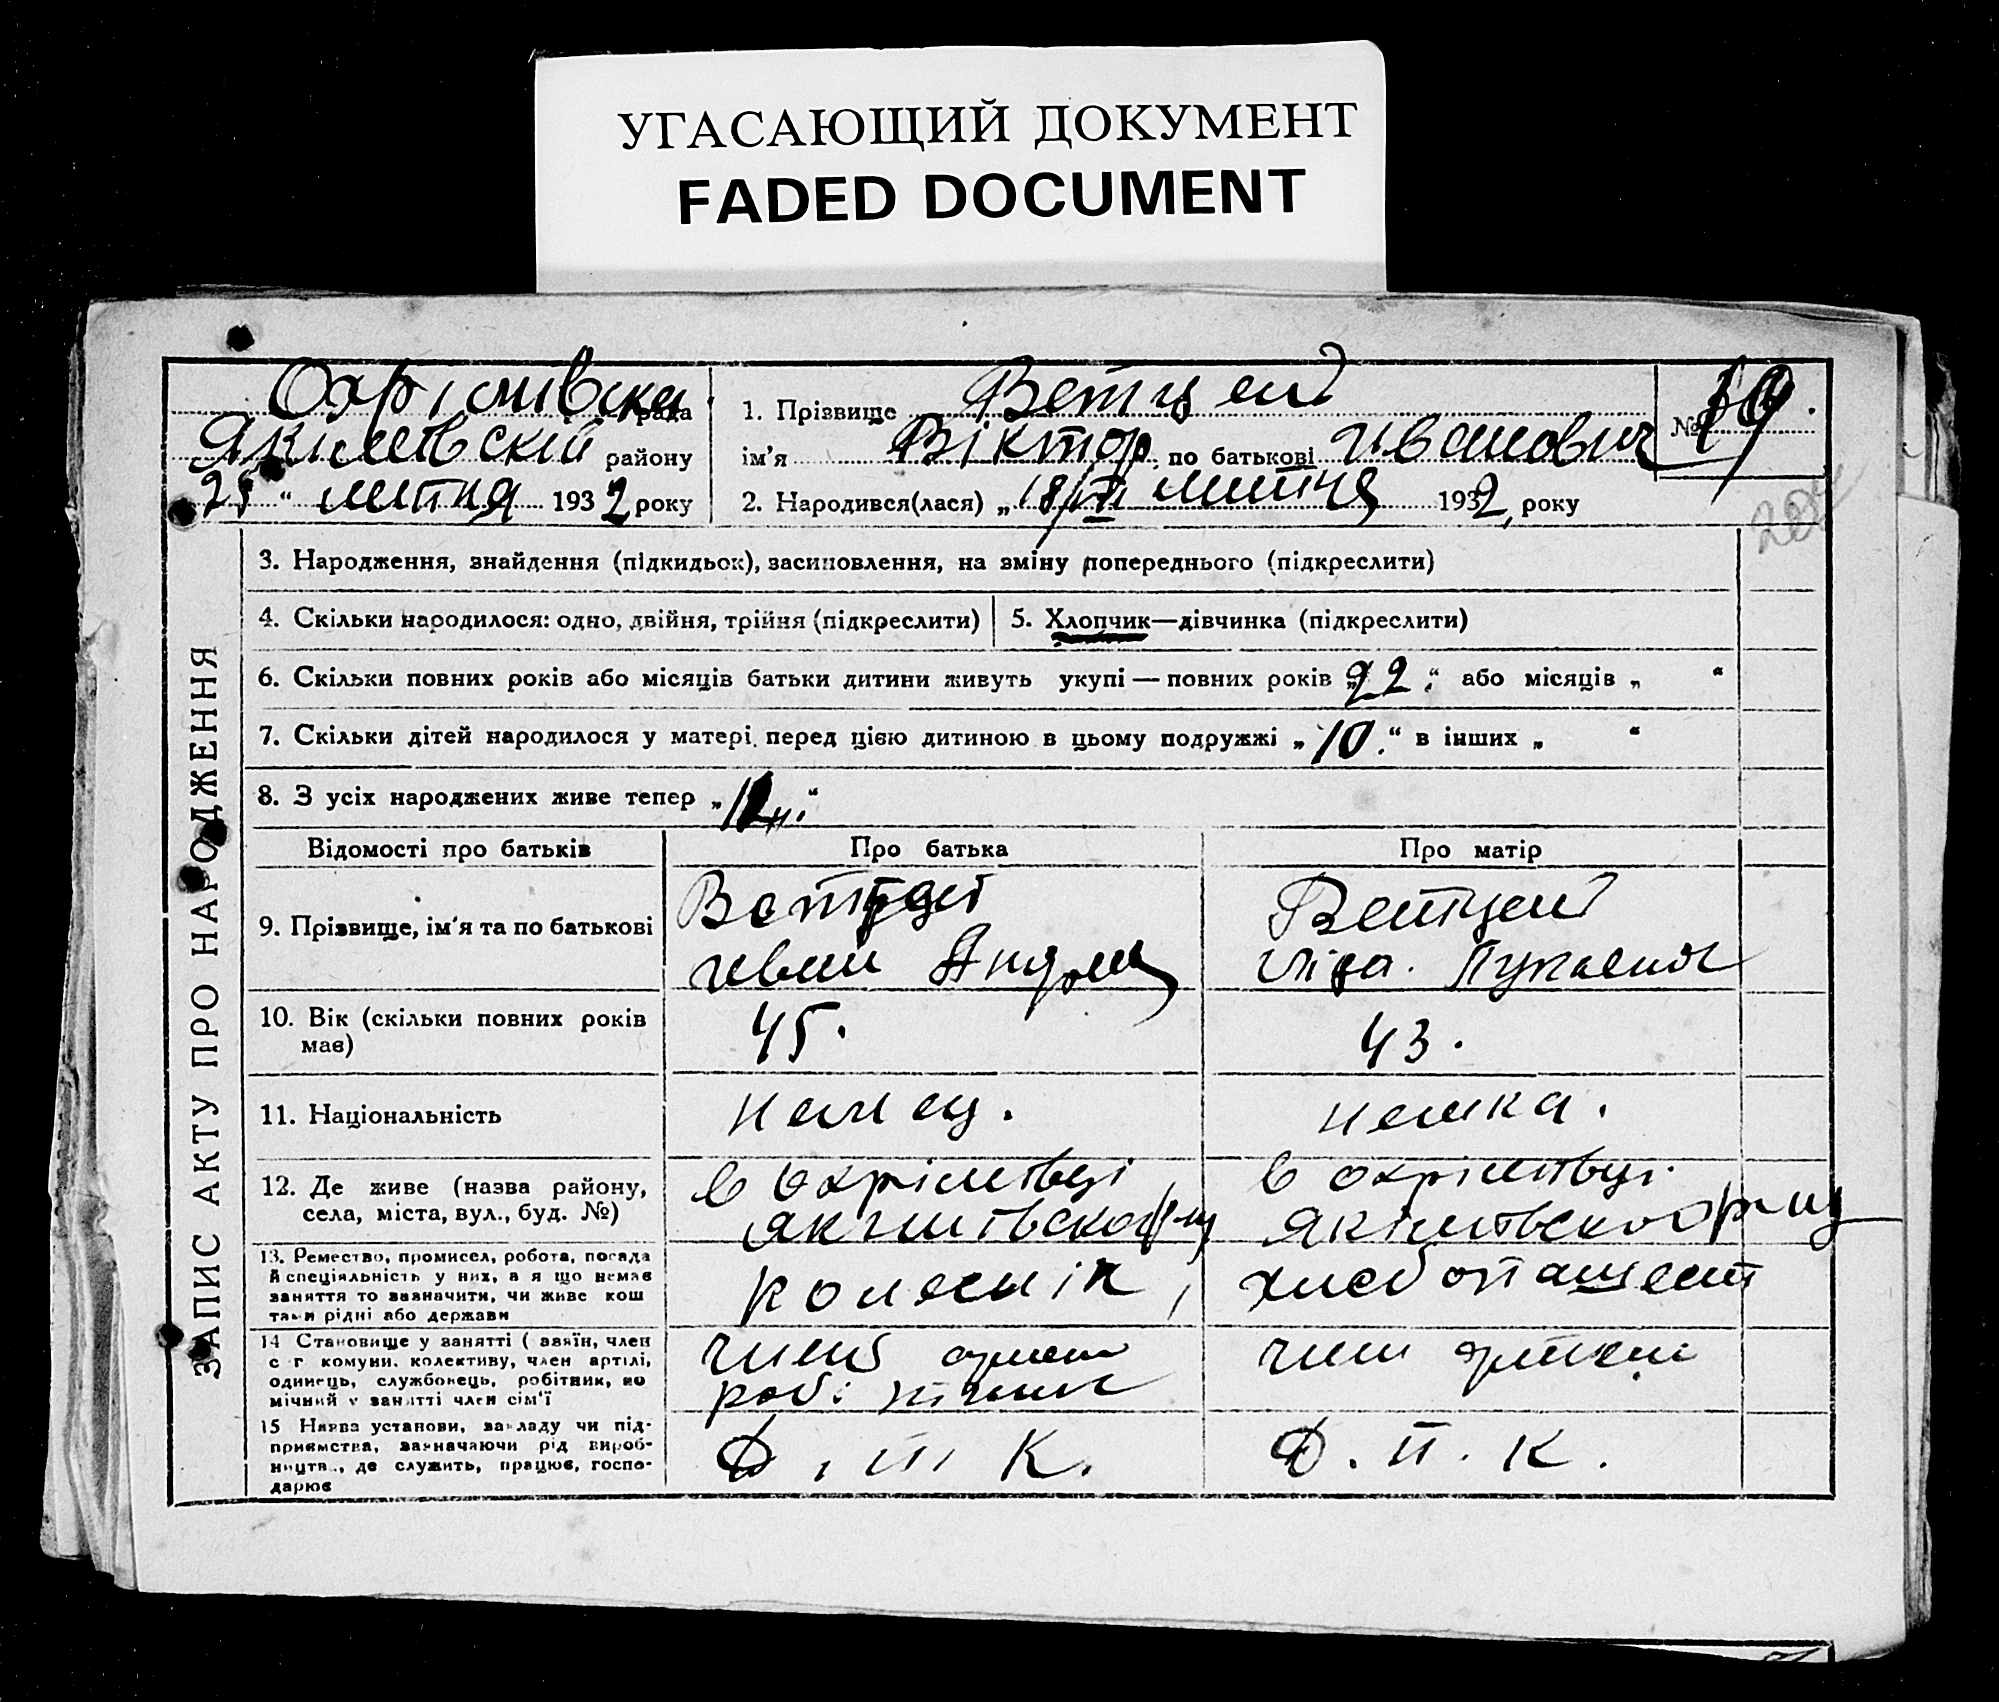 УГАСАЮЩИЙ ДОКУМЕНТ
FADED DOCUMENT
Охрімівська рада
Якимівский району
25 " липня 1932 року
1. Прізвище Ветцель
№ 19
ім'я Віктор, по батькові Иванович
2. Народився(лася) „18/VII липня 1932, року
ЗАПИС АКТУ ПРО НАРОДЖЕННЯ
3. Народження, знайдення (підкидьок), засиновлення, на зміну попереднього (підкреслити)
4. Скільки народилося: одно, двійня, трійня (підкреслити)
5. Хлопчик—дівчинка (підкреслити)
6. Скільки повних років або місяців батьки дитини живуть укупі — повних років „22." або місяців „ "
7. Скільки дітей народилося у матері перед цією дитиною в цьому подружжі „10." в інших „ "
8. З усіх народжених живе тепер „
Відомості про батьків
Про батька
Про матір
9. Прізвище, ім'я та по батькові
Ветцель
Иван Андре
Ветцель
10. Вік (скільки повних років має)
45.
43.
11. Національність
немец.
немка.
12. Де живе (назва району, села, міста, вул., буд. №)
в Охрімівці
Якимівского р-ну
в Охрімівці
Якимівского р-ну
13. Ремество, промисел, робота, посада
й спеціяльність у них, а я що немає
заняття то зазначити, чи живе кош
там рідні або держави
колеснік,
хлебопашест
14 Становище у занятті ( авяїн, член
с г комуни, колективу, член артілі,
одинець, службовець, робітник, по
мічний у занятті член сім'ї
член артели
член артели
15 Назва установи, закладу чи під-
приємства, зазначаючи рід вироб-
ництв., де служить, працює, госпо-
дарює
Ф. П. К.
Ф. П. К.